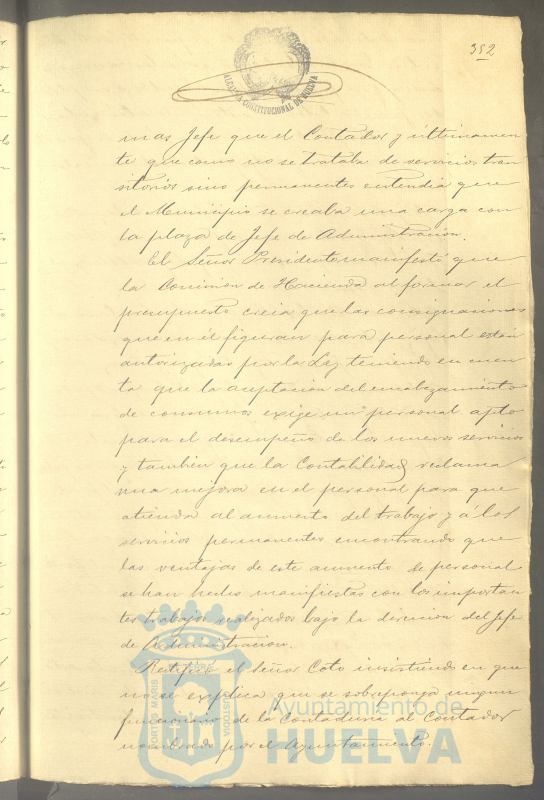 352
ALCALDIA CONSTITUCIONAL DE HUELVA
mas Jefe que el Contador y ultimamen
te que como no se trataba de servicios tran
sitorios sino permanentes entendia que
el Municipio se creaba una carga con
la plaza de Jefe de Administración.
El Señor Presidente manifestó que
la Comision de Hacienda al formar el
presupuesto creia que las consignaciones
que en él figuran para personal están
autorizadas por la Ley teniendo en cuen
ta que la aceptación del encabezamiento
de consumos exige un personal apto
para el desempeño de los nuevos servicios
y tambien que la Contabilidad reclama
una mejora en el personal para que
atienda al aumento del trabajo y á los
servicios permanentes encontrando que
las ventajas de este aumento de personal
se han hecho manifiestas con los importan
tes trabajos realizados bajo la direccion del Jefe
de Administracion.
Rectificó el Señor Coto insistiendo en que
no se explica que se sobreponga ningun
funcionario de la Contaduria al Contador
nombrado por el Ayuntamiento.
PORTUS MARIS
TERRAE CUSTODIA
Ayuntamiento de
HUELVA